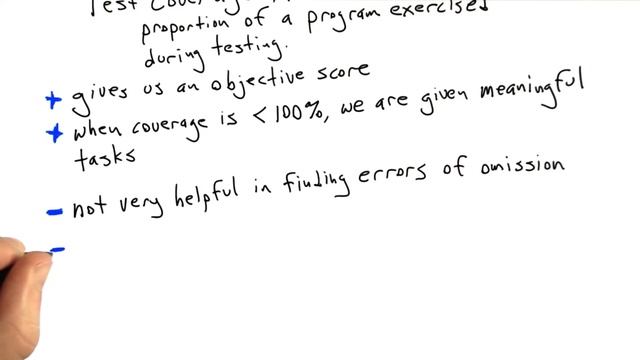 Test
proportion of a program exercised
during testing.
+ gives us an objective score
+ when coverage is < 100%, we are given meaningful
tasks
- not very helpful in finding errors of omission
-